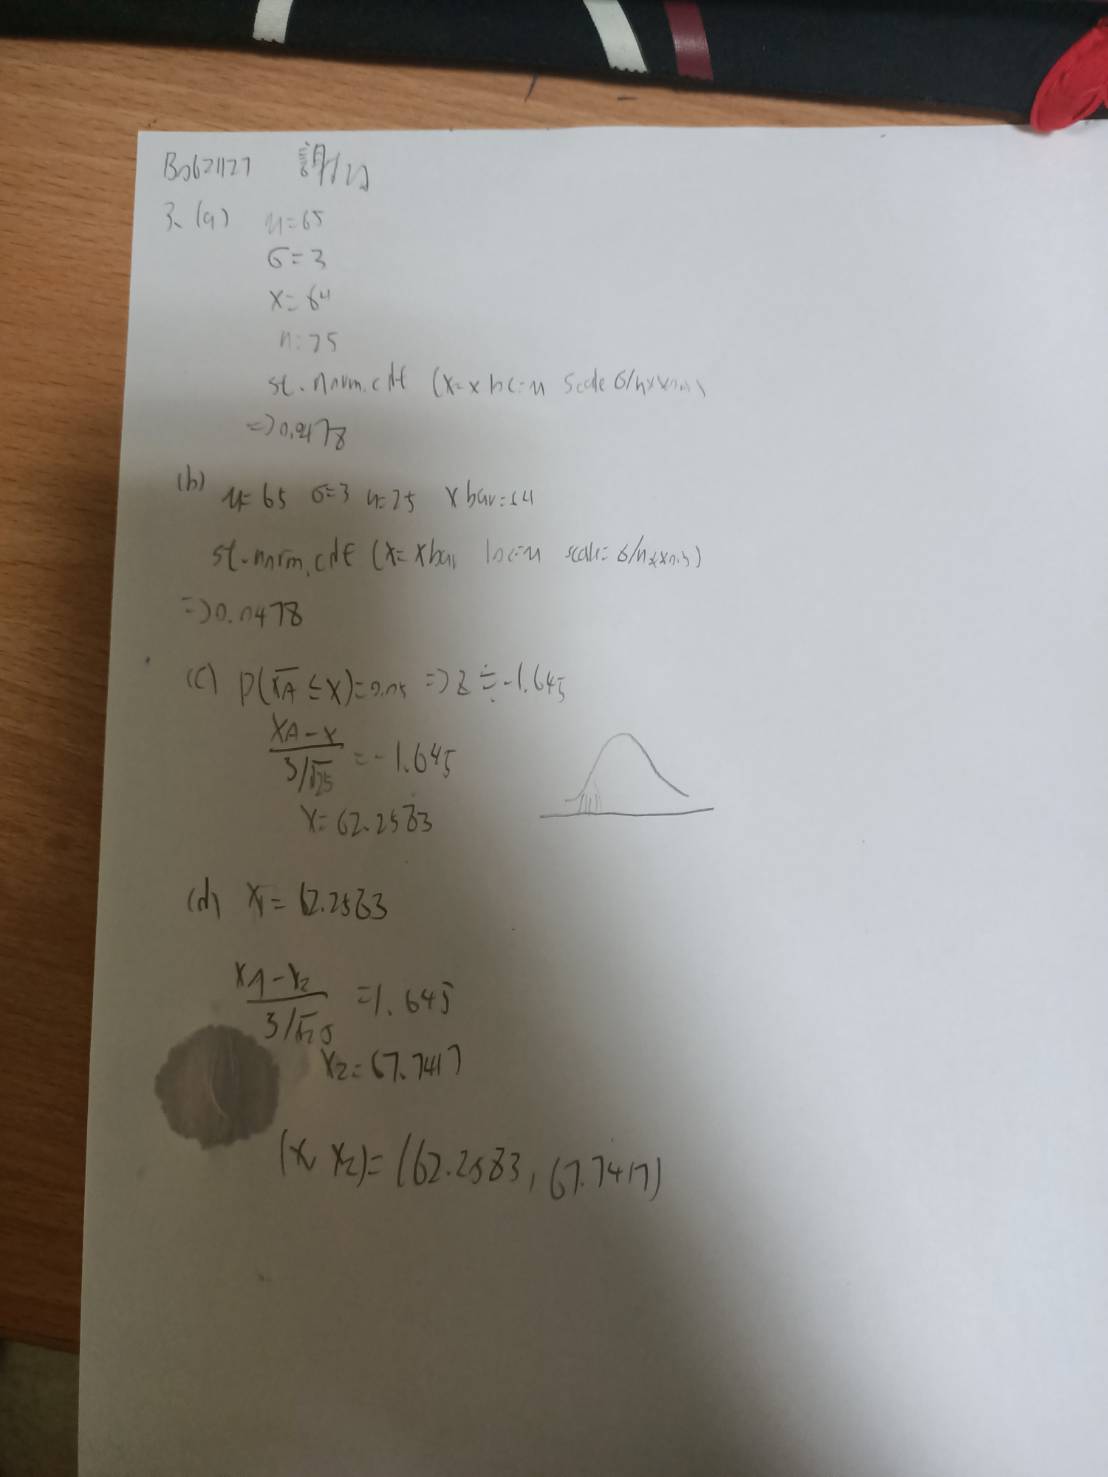 3、(a) μ=65
σ=3
x=64
n=25
st.norm.cdf (x=x loc=μ scale σ/n**0.5)
=>0.0478
(b) μ=65 σ=3 n=25 xbar=64
st.norm.cdf (x=xbar loc=μ scale=σ/n**0.5)
=>0.0478
(c) P(x̄A≤x)=0.05 =>z≑-1.645
xA-x/3/√25=-1.645
x=62.2583
(d) x1=62.2583
xA-x2/3/√25=1.645
x2=67.7417
(x1, x2)=(62.2583, 67.7417)